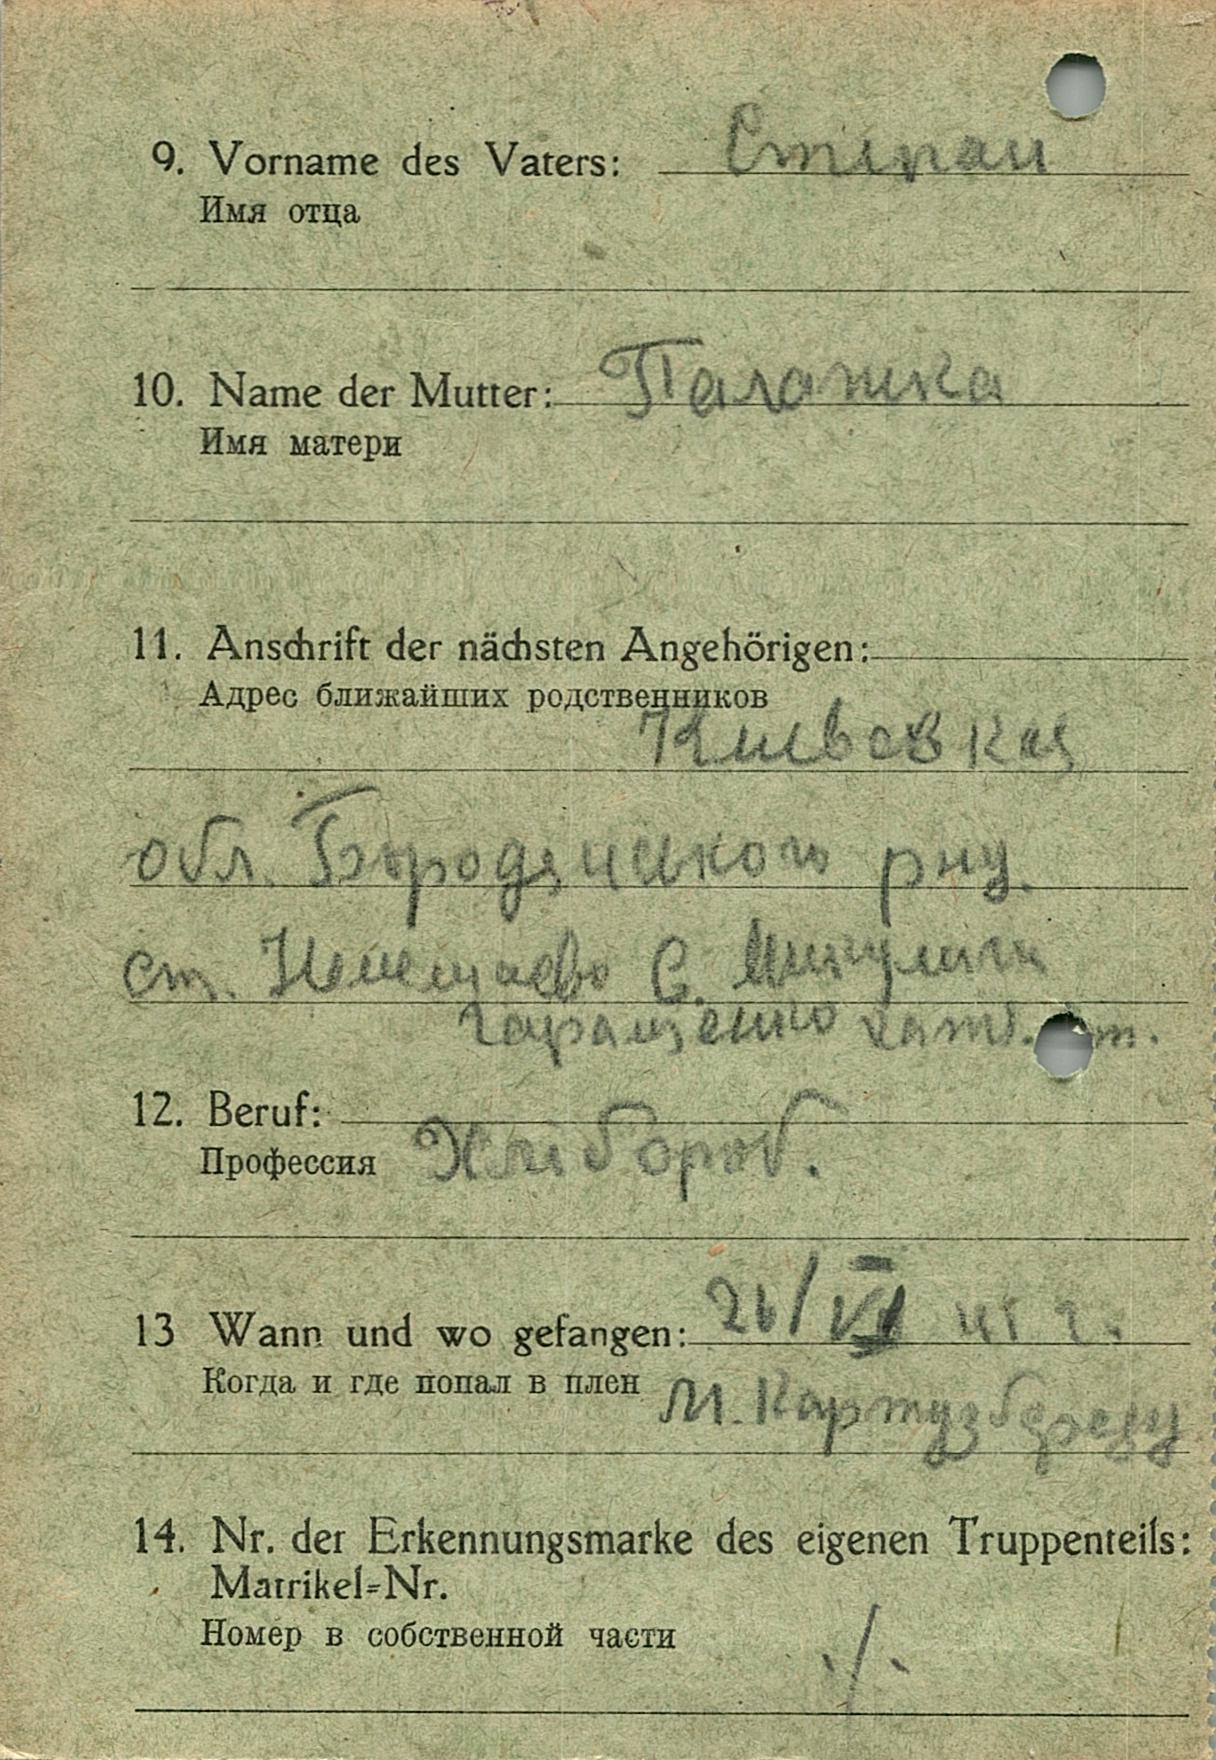 9. Vorname des Vaters: Степан
Имя отца
10. Name der Mutter: Палажка
Имя матери
11. Anschrift der nächsten Angehörigen:
Адрес ближайших родственников
Киевская
обл. Бородянського рну.
ст. Немешаево С. Микуличи
Гаращенко
12. Beruf:
Профессия Хлібороб.
13 Wann und wo gefangen: 26/VII 41 г.
Когда и где попал в плен М. Картузберезу
14. Nr. der Erkennungsmarke des eigenen Truppenteils:
Matrikel=Nr.
Номер в собственной части
./.